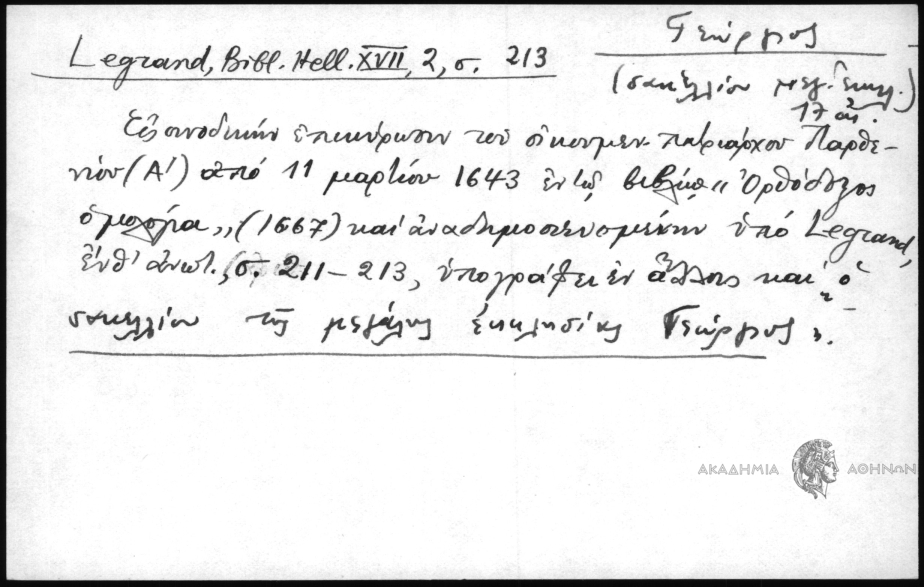 Γεώργιος
Legrand, Bibl. Hell. XVII, 2, σ. 213
(σακελλίου μεγ. ἐκκλ.)
17 αἰ.
Εἰς συνοδικὴν ἐπικύρωσιν τοῦ οἰκουμεν. πατριάρχου Παρθε-
νίου (Α') ἀπό 11 μαρτίου 1643 ἐν τῷ βιβλίῳ "Ὀρθόδοξος
ὁμολογία,, (1667) καὶ ἀναδημοσιευομένην ὑπό Legrand,
ἔνθ' ἀνωτ., σ. 211-213, ὑπογράφει ἐν ἄλλοις καὶ "ὁ
σακελλίου τῆς μεγάλης ἐκκλησίας Γεώργιος".
ΑΚΑΔΗΜΙΑ ΑΘΗΝΩΝ